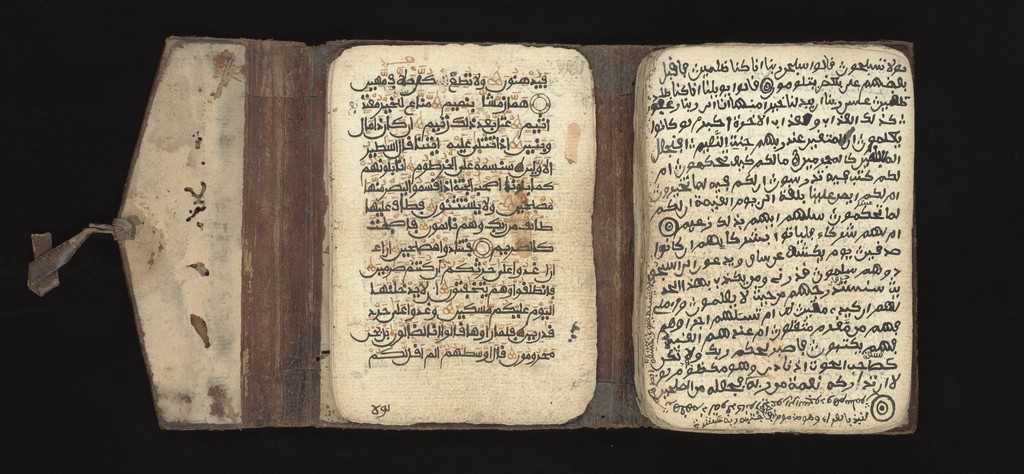 فيدهنون ولا تطع كل حلاف مهين
هماز مشاء بنميم مناع للخير معتد
اثيم عتل بعد ذلك زنيم ان كان ذا مال
وبنين اذا تتلى عليه ءايتنا قال اسطير
الاولين سنسمه على الخرطوم انا بلونهم
كما بلونا اصحب الجنة اذ اقسموا ليصرمنها
مصبحين ولا يستثنون فطاف عليها
طائف من ربك وهم نائمون فاصبحت
كالصريم فتنادوا مصبحين ان اغ
ان اغدوا على حرثكم ان كنتم صرمين
فانطلقوا وهم يتخفتون ان لا يدخلنها
اليوم عليكم مسكين وغدوا على حرد
قدرين فلما راوها قالوا انا لضالون بل نحن
محرومون قال اوسطهم الم اقل لكم
لولا
لولا تسبحون قالوا سبحن ربنا انا كنا ظلمين فاقبل
بعضهم على بعض يتلومون قالوا يويلنا انا كنا
طغين عسى ربنا ان يبدلنا خيرا منها انا الى ربنا رغبون
كذلك العذاب ولعذاب الاخرة اكبر لو كانوا
يعلمون ان للمتقين عند ربهم جنت النعيم افنجعل
المسلمين كالمجرمين ما لكم كيف تحكمون ام
لكم كتب فيه تدرسون ان لكم فيه لما تخيرون
ام لكم ايمن علينا بلغة الى يوم القيمة ان لكم
لما تحكمون سلهم ايهم بذلك زعيم
ام لهم شركاء فلياتوا بشركائهم ان كانوا
صدقين يوم يكشف عن ساق ويدعون الى السجو
د وهم سلمون فذرني ومن يكذب بهذا الحد
يث سنستدرجهم من حيث لا يعلمون واملي
لهم ان كيدي متين ام تسلهم اجرا
فهم من مغرم مثقلون ام عندهم الغيب
فهم يكتبون فاصبر لحكم ربك ولا تكن
كصاحب الحوت اذ نادى وهو مكظوم لو
لا ان تدركه نعمة من ربه فجعله من الصلحين
لنبذ بالعراء وهو مذموم فاجتبيه ربه